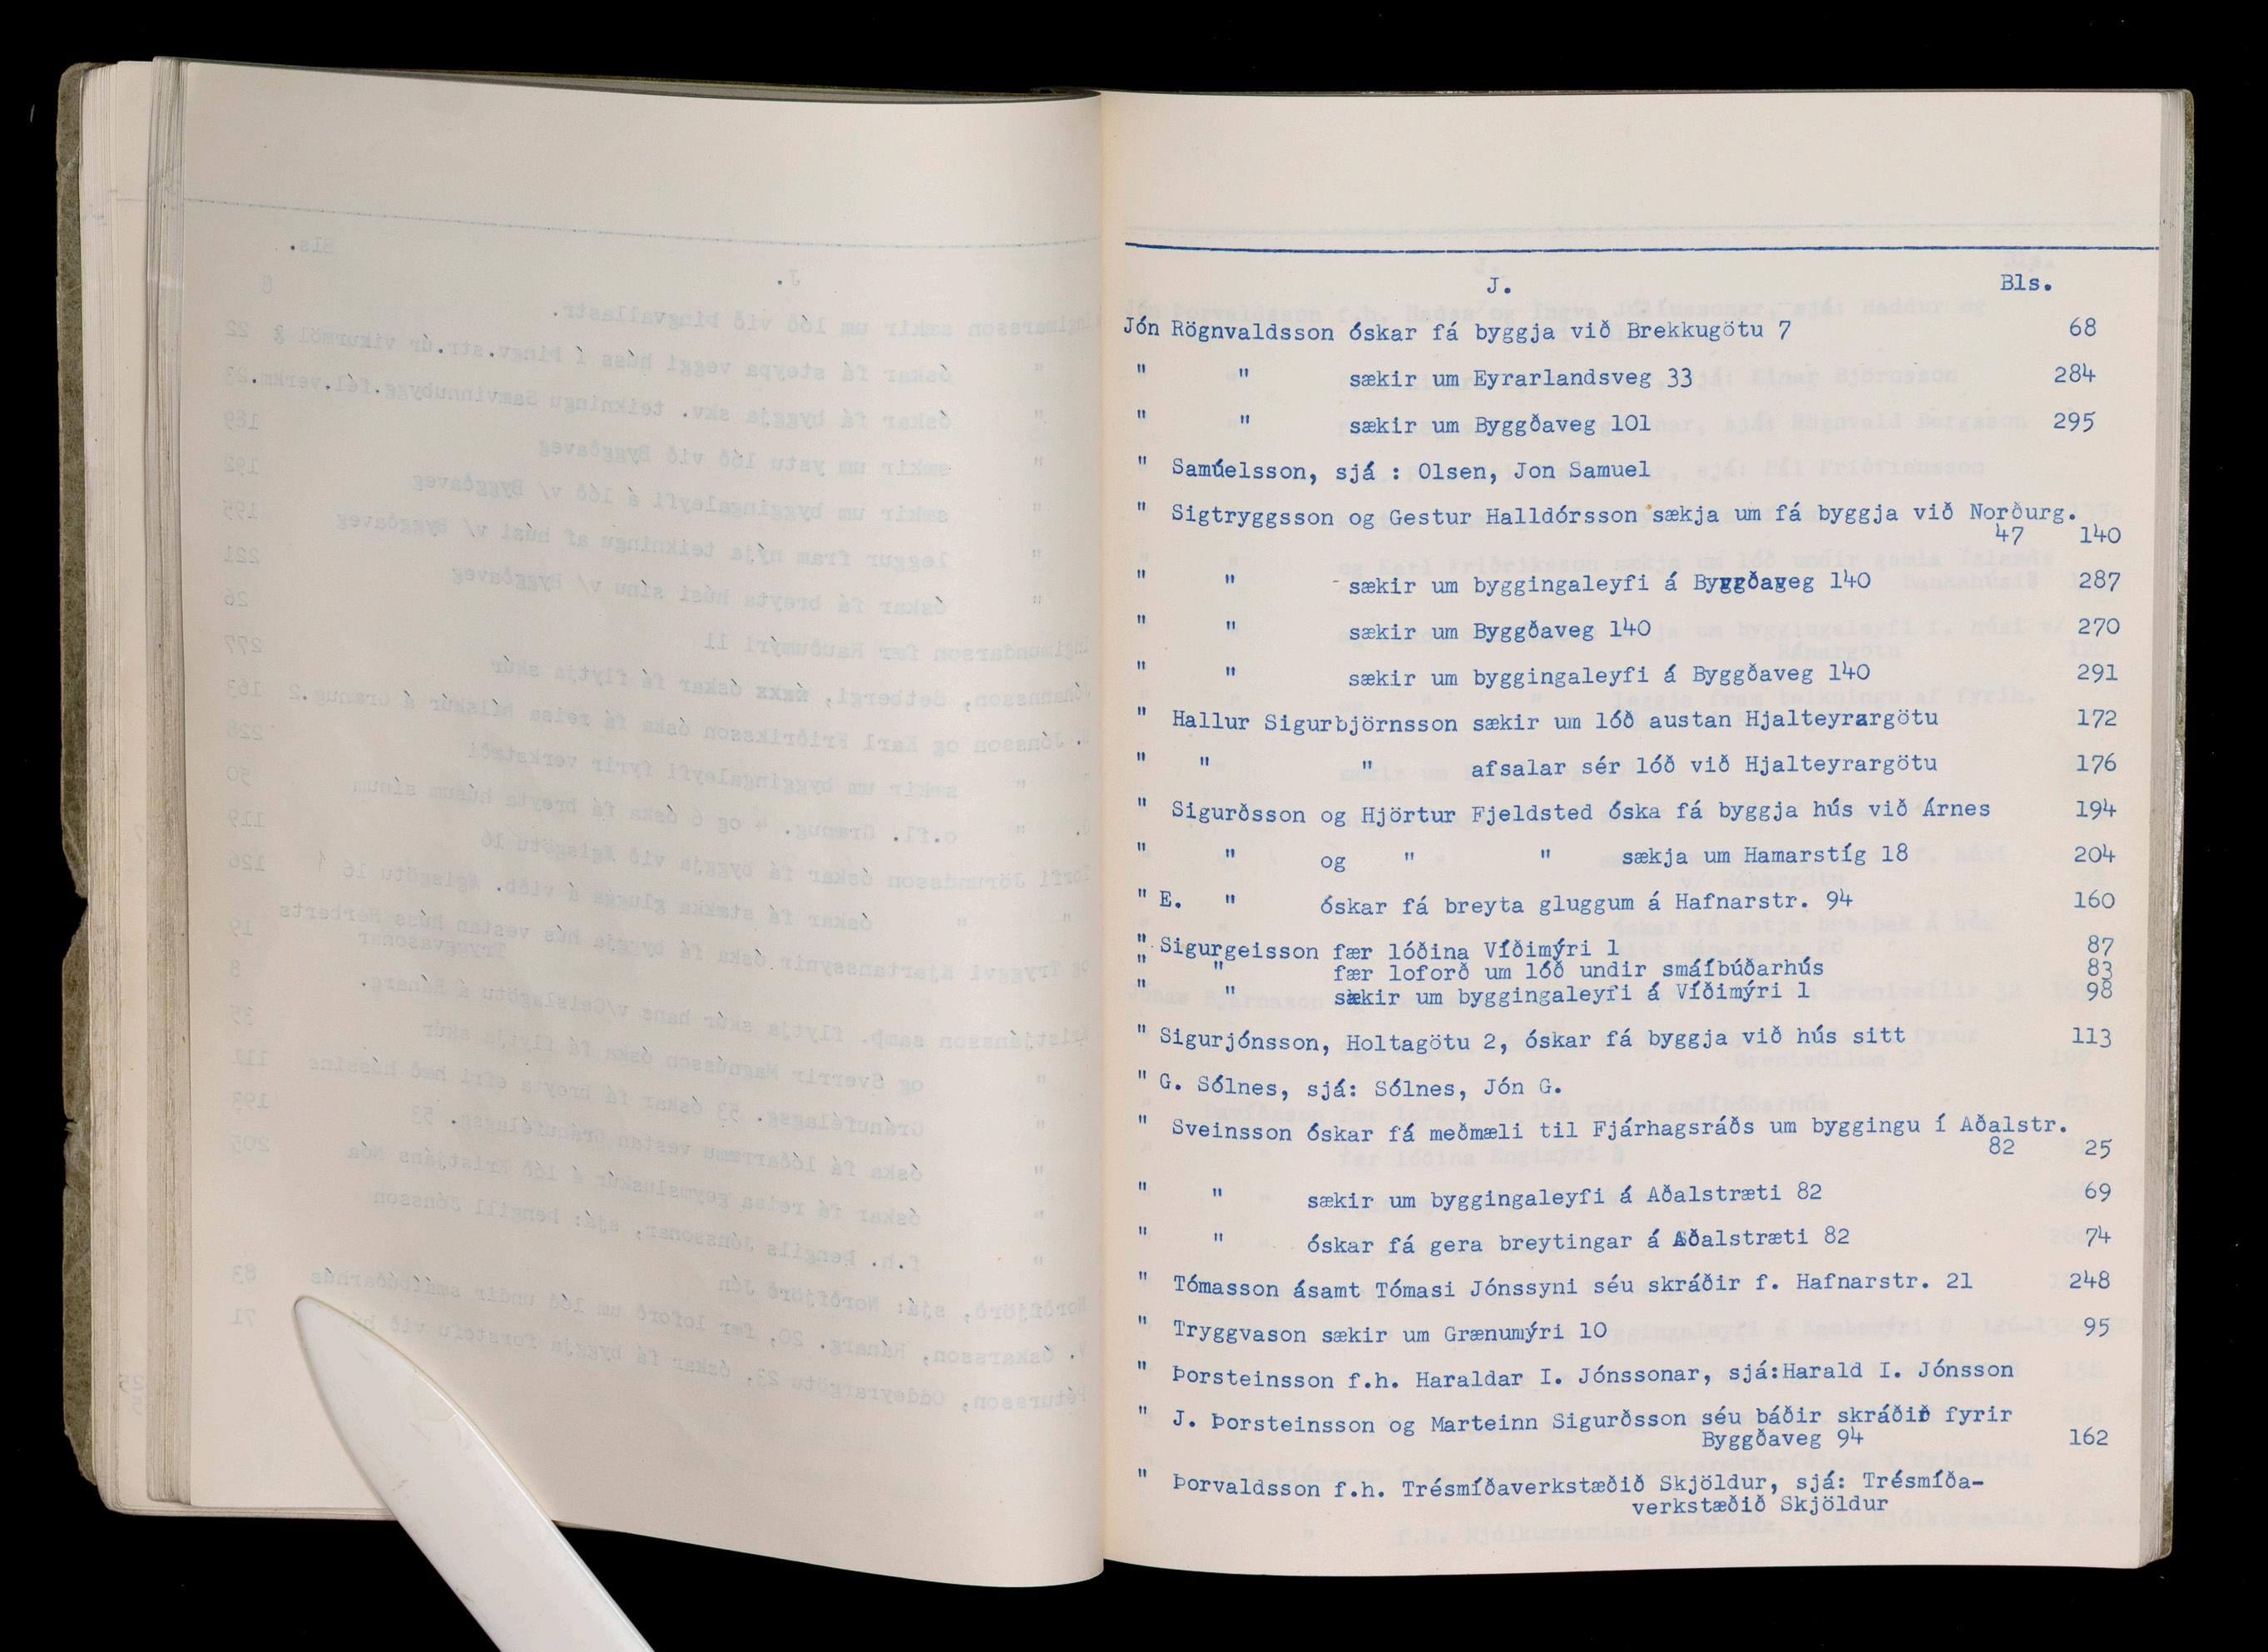 J. Bls.
Jón Rögnvaldsson óskar fá byggja við Brekkugötu 7 68
" " sækir um Eyrarlandsveg 33 284
" " sækir um Byggðaveg 101 295
" Samúelsson, sjá : Olsen, Jon Samuel
" Sigtryggsson og Gestur Halldórsson sækja um fá byggja við Norðurg.
47 140
" " sækir um byggingaleyfi á Byggðaveg 140 287
" " sækir um Byggðaveg 140 270
" " sækir um byggingaleyfi á Byggðaveg 140 291
" Hallur Sigurbjörnsson sækir um lóð austan Hjalteyrargötu 172
" " " afsalar sér lóð við Hjalteyrargötu 176
" Sigurðsson og Hjörtur Fjeldsted óska fá byggja hús við Árnes 194
" " og " " sækja um Hamarstíg 18 204
" E. " óskar fá breyta gluggum á Hafnarstr. 94 160
" Sigurgeisson fær lóðina Víðimýri 1 87
" " fær loforð um lóð undir smáíbúðarhús 83
" " sækir um byggingaleyfi á Víðimýri 1 98
" Sigurjónsson, Holtagötu 2, óskar fá byggja við hús sitt 113
" G. Sólnes, sjá: Sólnes, Jón G.
" Sveinsson óskar fá meðmæli til Fjárhagsráðs um byggingu í Aðalstr.
82 25
" " sækir um byggingaleyfi á Aðalstræti 82 69
" " óskar fá gera breytingar á Aðalstræti 82 74
" Tómasson ásamt Tómasi Jónssyni séu skráðir f. Hafnarstr. 21 248
" Tryggvason sækir um Grænumýri 10 95
" Þorsteinsson f.h. Haraldar I. Jónssonar, sjá:Harald I. Jónsson
" J. Þorsteinsson og Marteinn Sigurðsson séu báðir skráðir fyrir
Byggðaveg 94 162
" Þorvaldsson f.h. Trésmíðaverkstæðið Skjöldur, sjá: Trésmíða-
verkstæðið Skjöldur